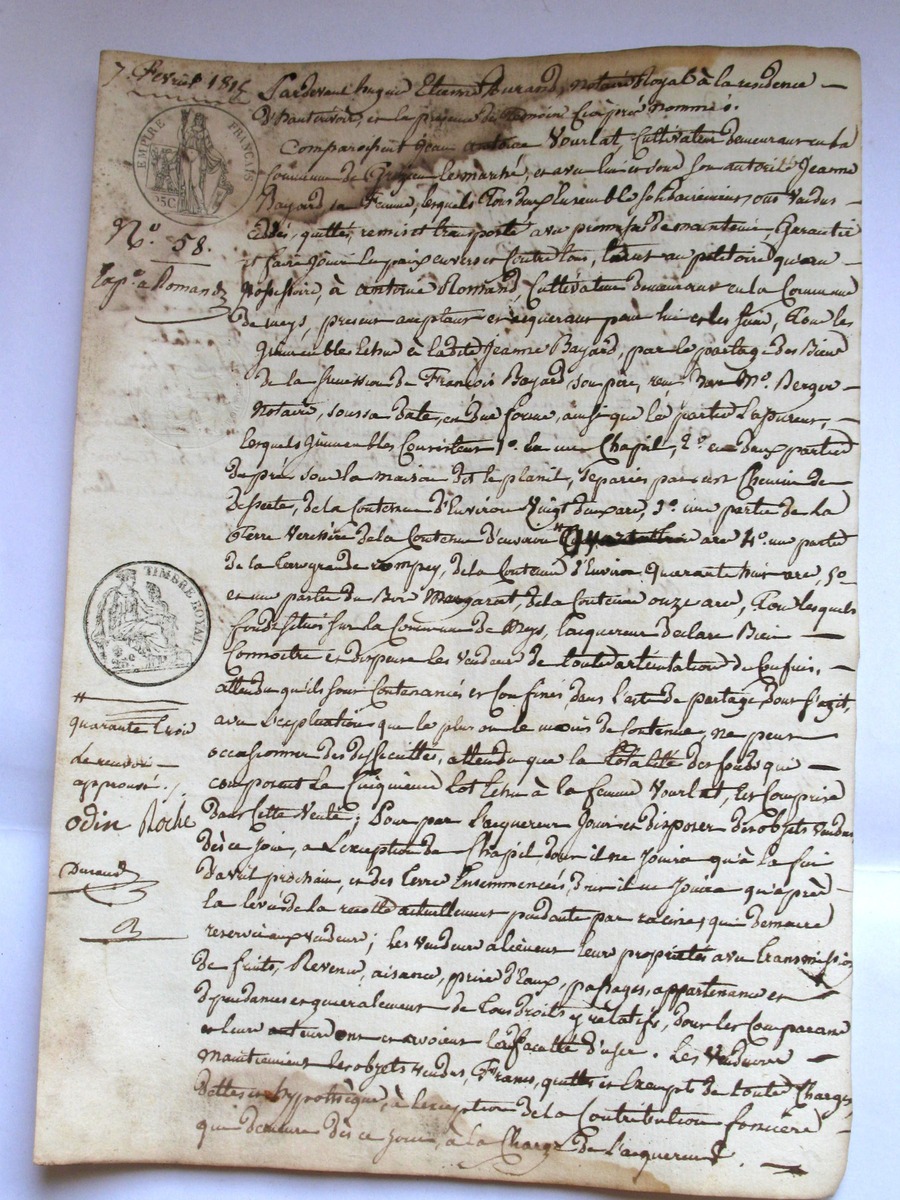 7. Fevrier 1815
EMPIRE FRANÇAIS
25C
N.º 58.
Exp.º a Romand
Pardevant hugue Etienne Durand, notaire Royal à la residence
d'hauterivoire, et en la presence de Temoins Ci après nommés.
Comparoissent Jean antoine Vourlat, Cultivateur demeurant en la
Commune de Grezieu le marché, et avec lui et sous son autorité Jeanne
Bayard sa Femme, lesquels Tous deux Ensemble solidairement, ont Vendus
Cédés, quittés, remis et transporté avec promesse de maintenir Garantir
et faire Jouir En paix envers et Contre tous, tant au petitoire qu'au
possessoire, à antoine Romand, Cultivateur demeurant en la Commune
De meys, present acceptant et acquerant pour lui et les siens, Tous les
Jmmeubles Echus à ladite Jeanne Bayard, par le partage des Biens
de la succession de François Bayard son père, reçu M.e Berger
Notaire, sous sa Date, en due forme, ainsi que la partie
lesquels Jmmeubles Consistent 1.º En une Chapit, 2.º en deux parties
de pré sous la maison dit le planit, separées par un Chemin de
desserte, de la Contenue d'Environ Vingt deux ares, 3.º une partie de la
Terre Verchère de la Contenue d'environ ares 4.º une partie
de la terre grande rompey, de la Contenue d'Environ Quarante huit ares, 5.º
et une partie du Bois Margarat, de la Contenue onze ares, Tous lesquels
fonds situés sur la Commune de Meys, l'acquereur declare Bien
Connoitre et dispense les Vendeurs de toute de Confins,
attendu qu'ils sont Contenancés et Confinés dans l'acte de partage dont s'agit,
avec l'explication que le plus ou le moins de Contenue, ne peut
occasionner des difficultés, attendu que la totalité des fonds qui
composent le Cinquième Lot Echu à la femme Vourlat, Est Comprise
Dans Cette Vente; Pour par l'acquereur Jouir et disposer des objets Vendus
dès ce jour, a l'exception de Chapit dont il ne Jouira qu'à la fin
d'avril prochain, et des terres Ensemmencées, dont il ne Jouira qu'après
la levée de la recolte actuellement pendante par racines, qui demeure
reservée aux Vendeurs; les Vendeurs alienent leurs propriétés avec transmission
de fruits, Revenu, aisance, prise d'Eaux, passages, appartenances et
dependances et generalement de tous droits y rélatifs, dont les Comparans
et leurs auteurs ont et avoient la faculté d'user. Les Vendeurs
maintiennent les objets vendus, Francs, quittes et Exempt de toute Charges
dettes et hypothèque, à l'exception de la Contribution foncière
qui demeure dès ce jour, à la Charge de l'acquereur.
TIMBRE ROYAL
quarante trois
Le renvoi
approuvé.
odin Roche
Durand